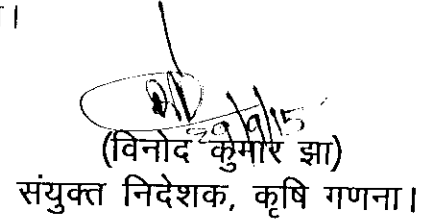 ।
29/9/15
(विनोद कुमार झा)
संयुक्त निदेशक, कृषि गणना।